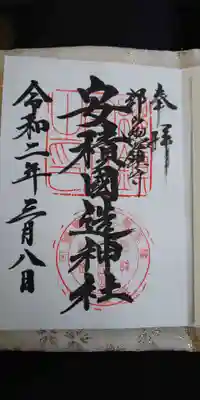 奉拜
郡山總鎮守
安積國造神社
令和二年三月八日